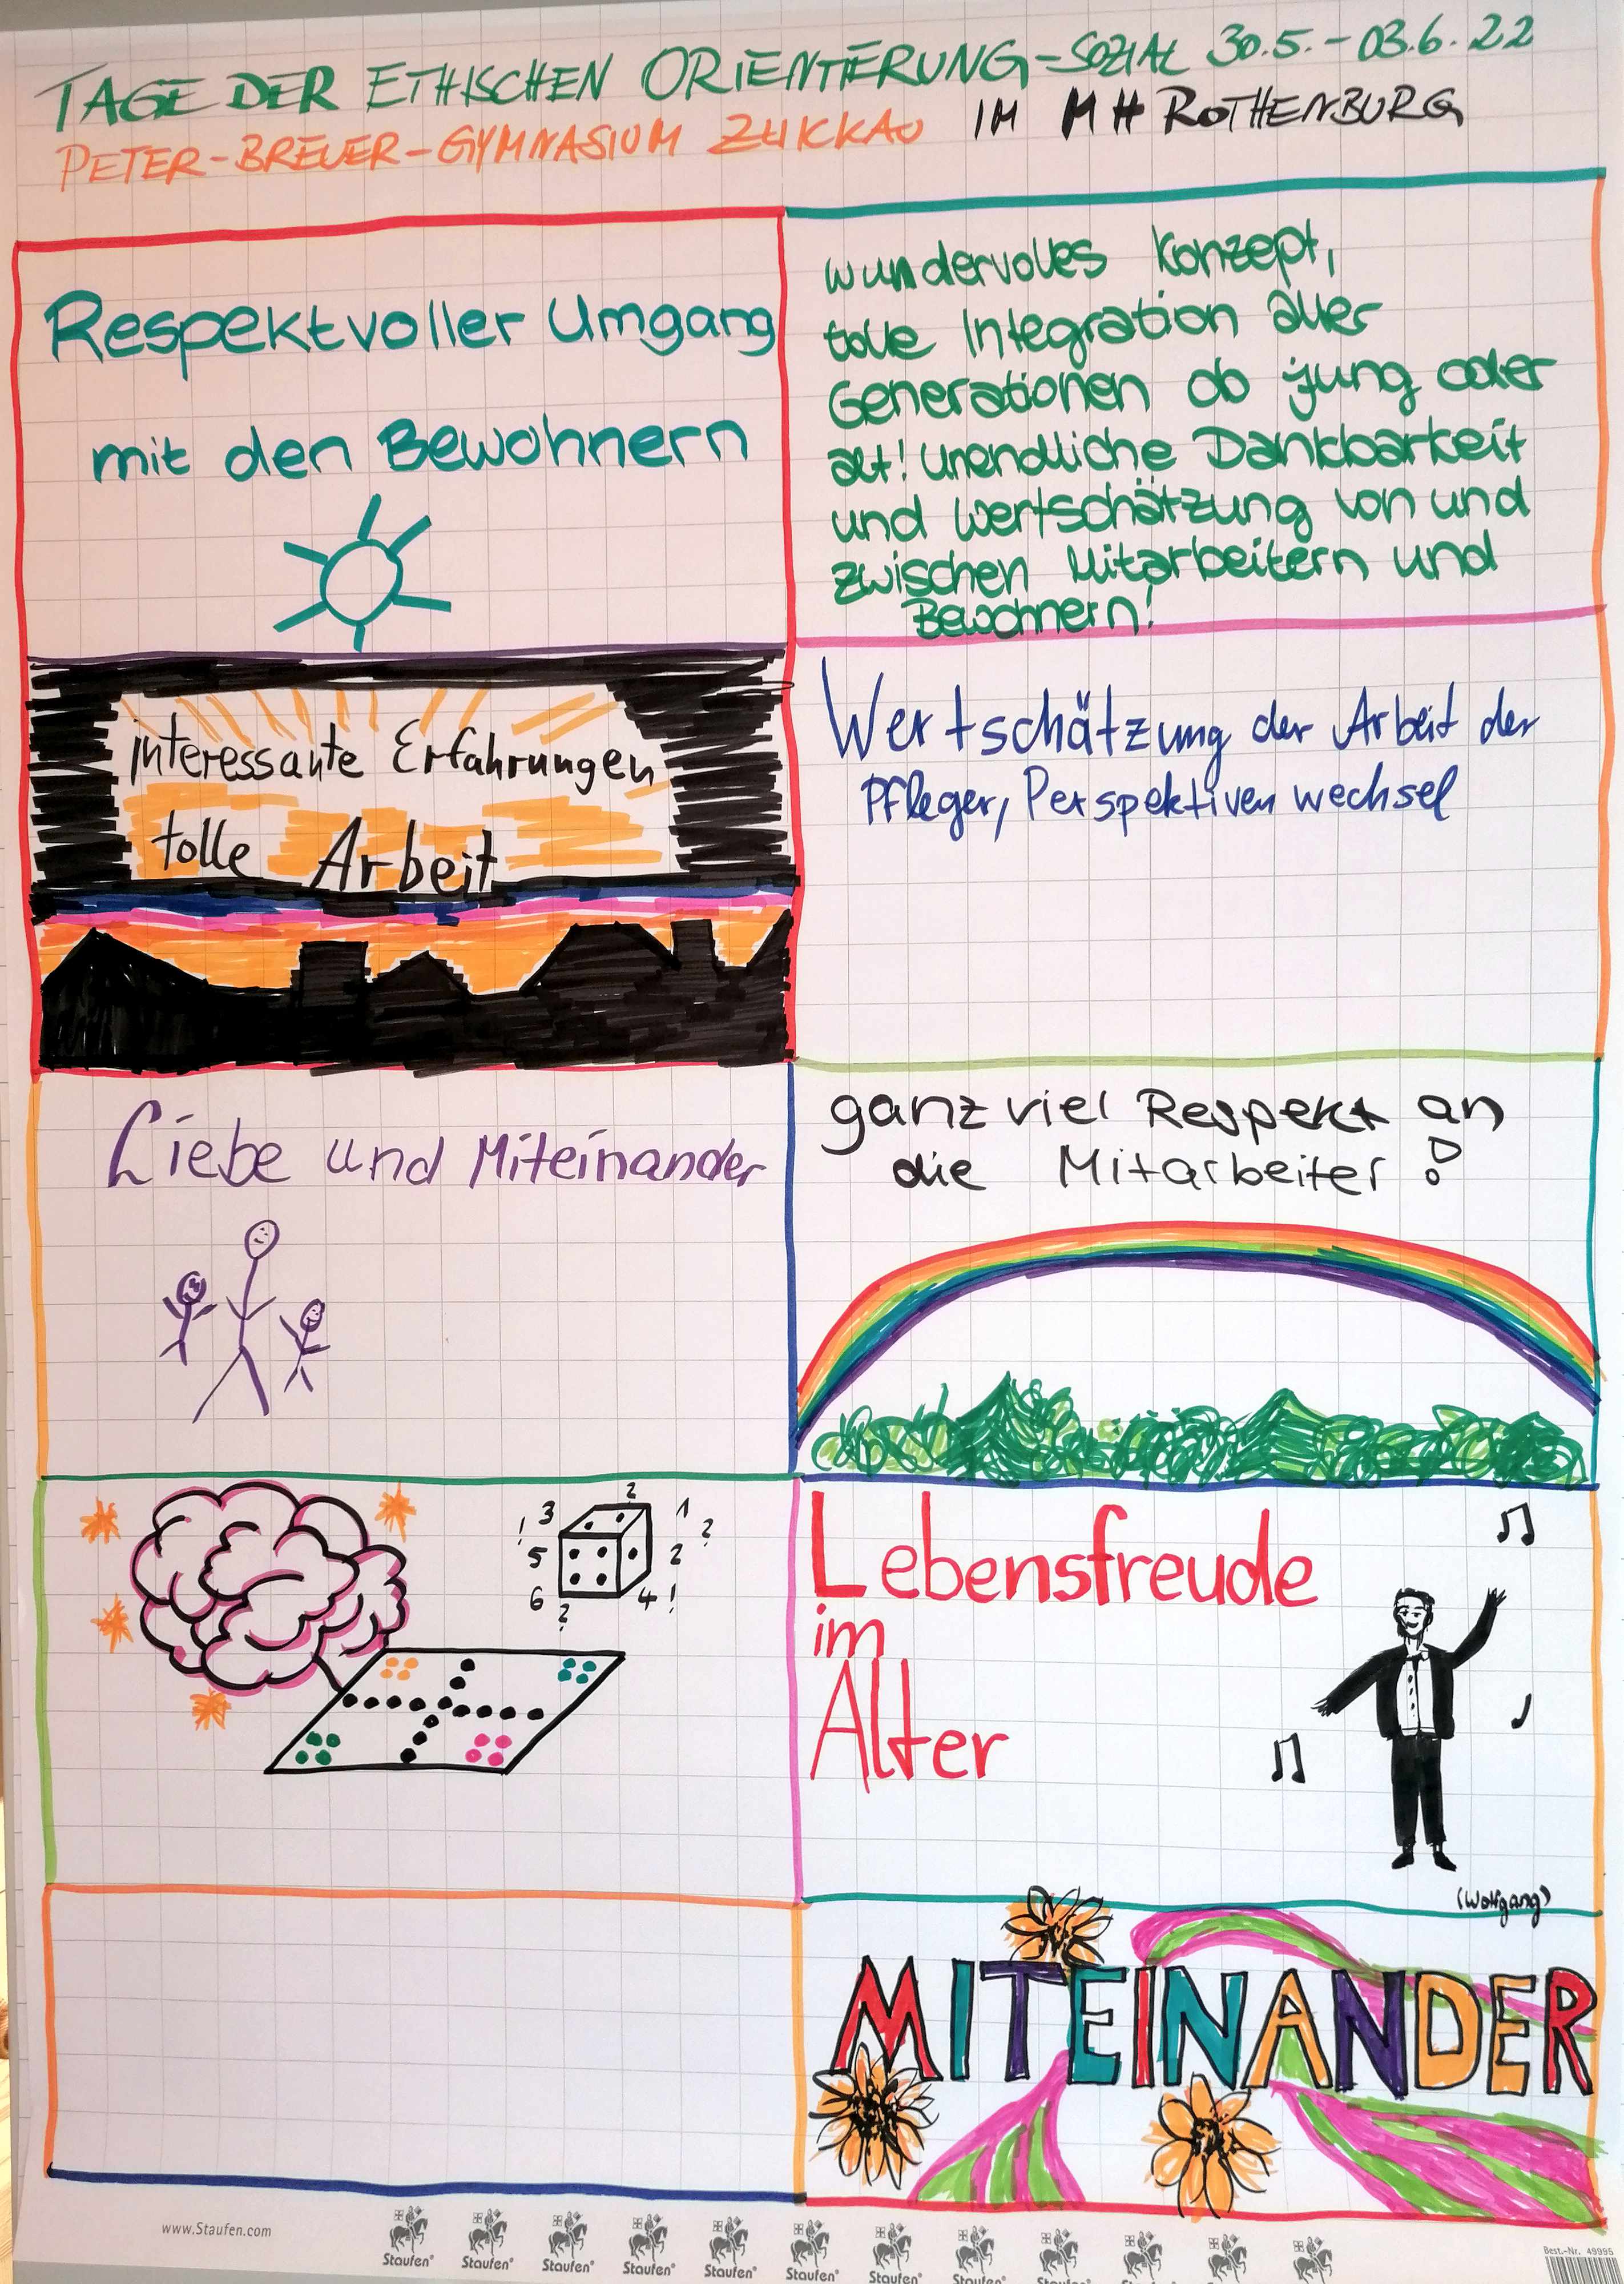 TAGE DER ETHISCHEN ORIENTIERUNG-SOZIAL 30.5.-03.6.22
PETER-BREUER-GYMNASIUM ZWICKAU IM MH ROTHENBURG
Respektvoller Umgang
mit den Bewohnern
wundervolles Konzept,
tolle Integration aller
Generationen ob jung oder
alt! unendliche Dankbarkeit
und Wertschätzung von und
zwischen Mitarbeitern und
Bewohnern!
interessante Erfahrungen
tolle Arbeit
Wertschätzung der Arbeit der
Pfleger, Perspektivenwechsel
Liebe und Miteinander
ganz viel Respekt an
die Mitarbeiter!
2
! 3 1 ?
5 2
6 ? 4 !
Lebensfreude
im
Alter
(Wolfgang)
MITEINANDER
www.Staufen.com
Staufen® Staufen® Staufen® Staufen® Staufen® Staufen® Staufen® Staufen® Staufen® Staufen® Staufen® Staufen®
Best.-Nr. 49995